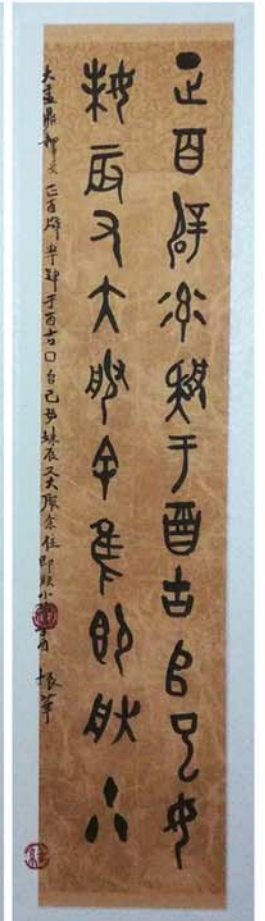 正百辟率肄于酉古𠂤已女
妹辰又大服余隹即朕小
大盂鼎 正百辟率肄于酉古口自己女妹辰又大服余隹即朕小 振華